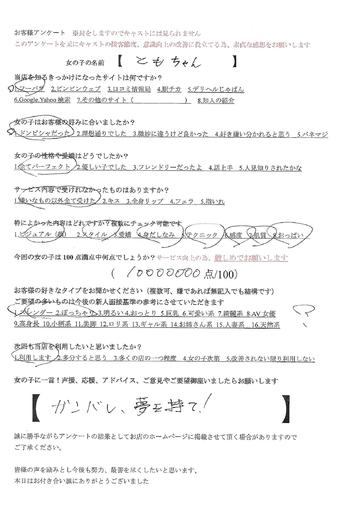 お客様アンケート　※封をしますのでキャストには見られません
このアンケートを元にキャストの接客態度、意識向上の改善に役立てる為、素直な感想をお願いします
女の子の名前　【　ともちゃん　】
当店を知るきっかけになったサイトは何ですか?
1.ヌーバ 2.ビンビンウェブ 3.口コミ情報局 4.駅チカ 5.デリヘルじゃぱん
6.Google,Yahoo検索 7.その他のサイト(　　　　　) 8.知人の紹介
女の子はお客様の好みに合いましたか?
1.ドンピシャだった 2.理想通りでした 3.微妙に違うけど良かった 4.好き嫌い分かれると思う 5.パネマジ
女の子の性格や愛嬌はどうでしたか?
1.全てパーフェクト 2.優しい子でした 3.フレンドリーだったよ 4.話上手 5.人見知りされたかな
サービス内容で受けれなかったものはありますか?
1.嫌いなもの以外全て受けた 2.キス 3.全身リップ 4.フェラ 5.指いれ
特によかった内容はどれですか?複数にチェック可能です
1.ビジュアル(顔) 2.スタイル 3.愛嬌 4.身だしなみ 5.テクニック 6.感度 7.肌質 8.おっぱい
今回の女の子は100点満点中何点でしょうか?サービス向上の為、厳しめでお願いします
(　10000000点/100)
お客様の好きなタイプをお聞かせください（複数可、嫌であれば無記入でも結構です）
ご要望の多いものは今後の新人面接基準の参考にさせていただきます
1.スレンダー 2.ぽっちゃり 3.明るい 4.おっとり 5.巨乳 6.可愛い系 7.綺麗系 8.AV女優
9.高身長 10.小柄系 11.美脚 12.ロリ系 13.ギャル系 14.お姉さん系 15.人妻系 16.天然系
次回も当店を利用したいと思いましたか?
1.利用します 2.多分すると思う 3.多くの店の一つ程度 4.女の子次第 5.改善されない限り利用しない
女の子に一言!声援、応援、アドバイス、ご意見やご要望御座いましたらお願いします
【　ガンバレ、夢を持て!　】
誠に勝手ながらアンケートの結果としてお店のホームページに掲載させて頂く場合がありますので
ご了承ください。
皆様の声を励みとし今後も努力、最善を尽くしたいと思います。
本日はお付き合い誠にありがとうございました